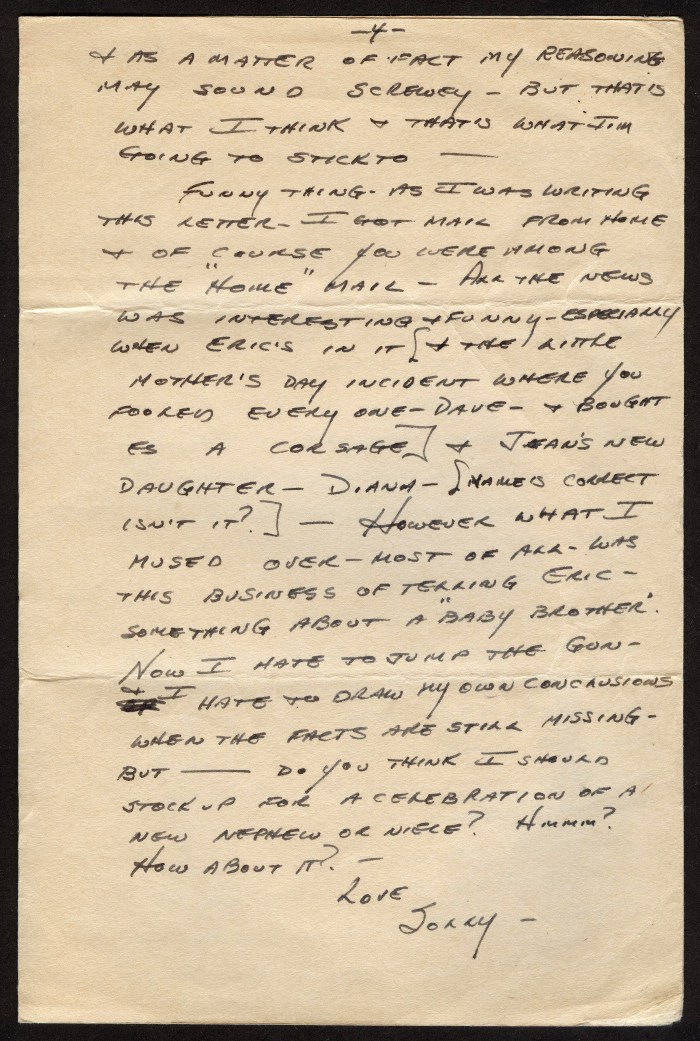 -4-
& AS A MATTER OF FACT MY REASONING
MAY SOUND SCREWEY - BUT THAT'S
WHAT I THINK & THAT'S WHAT I'M
GOING TO STICK TO —
FUNNY THING - AS I WAS WRITING
THIS LETTER - I GOT MAIL FROM HOME
& OF COURSE YOU WERE AMONG
THE "HOME" MAIL - ALL THE NEWS
WAS INTERESTING & FUNNY - ESPECIALLY
WHEN ERIC'S IN IT [& THE LITTLE
MOTHER'S DAY INCIDENT WHERE YOU
FOOLED EVERY ONE - DAVE - & BOUGHT
ES A CORSAGE] & JEAN'S NEW
DAUGHTER - DIANA - [NAME IS CORRECT
ISN'T IT?] — HOWEVER WHAT I
MUSED OVER - MOST OF ALL - WAS
THIS BUSINESS OF TELLING ERIC -
SOMETHING ABOUT A "BABY BROTHER".
NOW I HATE TO JUMP THE GUN -
& I HATE TO DRAW MY OWN CONCLUSIONS
WHEN THE FACTS ARE STILL MISSING -
BUT — DO YOU THINK I SHOULD
STOCK UP FOR A CELEBRATION OF A
NEW NEPHEW OR NIECE? HMMM?
HOW ABOUT IT? -
LOVE
SOLLY -